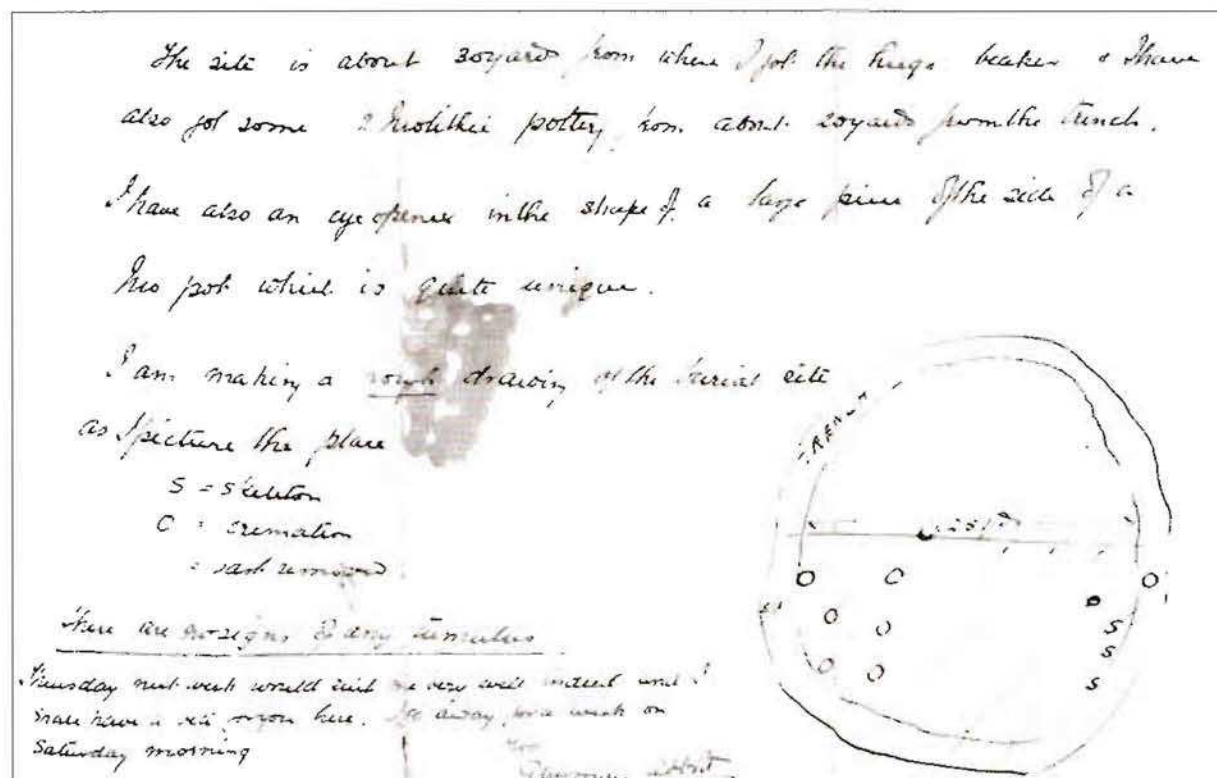 The site is about 30 yards from where I got the huge beaker & I have
also got some ? Neolithic pottery from about 20 yards from the trench.
I have also an eye opener in the shape of a large piece of the side of a
Neo pot which is quite unique.
I am making a rough drawing of the burial site
as I picture the place
S = Skeleton
C = cremation
= removed
There are no signs of any tumulus
next week would suit me very well indeed and I
have a for you here. away for a week on
Saturday morning
TRENCH
O C O
O O S
S
O O S